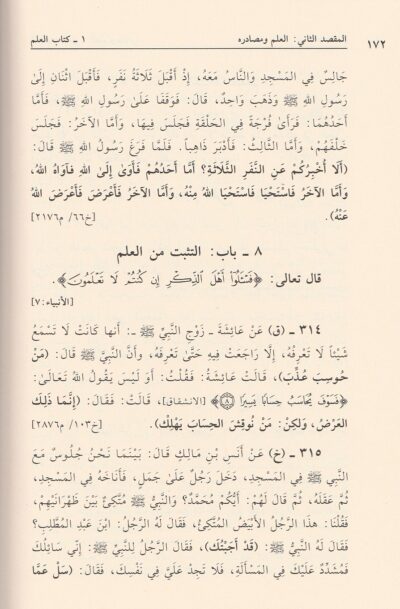 ١٧٢ المقصد الثاني: العلم ومصادره ١ ـ كتاب العلم
جَالِسٌ فِي المَسْجِدِ وَالنَّاسُ مَعَهُ، إِذْ أَقْبَلَ ثَلَاثَةُ نَفَرٍ، فَأَقْبَلَ اثْنَانِ إِلَىٰ
رَسُولِ اللهِ ﷺ وَذَهَبَ وَاحِدٌ، قَالَ: فَوَقَفَا عَلَىٰ رَسُولِ اللهِ ﷺ، فَأَمَّا
أَحَدُهُمَا: فَرَأَىٰ فُرْجَةً فِي الحَلْقَةِ فَجَلَسَ فِيهَا، وَأَمَّا الآخَرُ: فَجَلَسَ
خَلْفَهُمْ، وَأَمَّا الثَّالِثُ: فَأَدْبَرَ ذَاهِباً. فَلَمَّا فَرَغَ رَسُولُ اللهِ ﷺ قَالَ:
(أَلَا أُخْبِرُكُمْ عَنِ النَّفَرِ الثَّلَاثَةِ؟ أَمَّا أَحَدُهُمْ فَأَوَىٰ إِلَىٰ اللهِ فَآوَاهُ اللهُ،
وَأَمَّا الآخَرُ فَاسْتَحْيَا فَاسْتَحْيَا اللهُ مِنْهُ، وَأَمَّا الآخَرُ فَأَعْرَضَ فَأَعْرَضَ اللهُ
عَنْهُ). [خ٦٦/ م٢١٧٦]
٨ ـ باب: التثبت من العلم
قال تعالى: ﴿فَسْـَٔلُوٓا۟ أَهْلَ ٱلذِّكْرِ إِن كُنتُمْ لَا تَعْلَمُونَ﴾.
[الأنبياء:٧]
٣١٤ ـ (ق) عَنْ عَائِشَةَ ـ زَوْجِ النَّبِيِّ ﷺ ـ: أنها كَانَتْ لَا تَسْمَعُ
شَيْئاً لَا تَعْرِفُهُ، إِلَّا رَاجَعَتْ فِيهِ حَتَّىٰ تَعْرِفَهُ، وأنَّ النَّبِيَّ ﷺ قَالَ: (مَنْ
حُوسِبَ عُذِّبَ)، قَالَتْ عَائِشَةُ: فَقُلْتُ: أَوَ لَيْسَ يَقُولُ اللهُ تَعَالَىٰ:
﴿فَسَوْفَ يُحَاسَبُ حِسَابًا يَسِيرًا ٨﴾ [الانشقاق]، قَالَتْ: فَقَالَ: (إِنَّمَا ذَلِكَ
العَرْضُ، وَلٰكِنْ: مَنْ نُوقِشَ الحِسَابَ يَهْلِكْ). [خ١٠٣/ م٢٨٧٦]
٣١٥ ـ (خ) عَنْ أَنَسِ بْنِ مَالِكٍ قَالَ: بَيْنَمَا نَحْنُ جُلُوسٌ مَعَ
النَّبِي ﷺ فِي المَسْجِدِ، دَخَلَ رَجُلٌ عَلَىٰ جَمَلٍ، فَأَنَاخَهُ فِي المَسْجِدِ،
ثُمَّ عَقَلَهُ، ثُمَّ قَالَ لَهُمْ: أَيُّكُمْ مُحَمَّدٌ؟ وَالنَّبِيُّ ﷺ مُتَّكِئٌ بَيْنَ ظَهْرَانَيْهِمْ،
فَقُلْنَا: هٰذَا الرَّجُلُ الأَبْيَضُ المُتَّكِئُ، فَقَالَ لَهُ الرَّجُلُ: ابْنَ عَبْدِ المُطَّلِبِ؟
فَقَالَ لَهُ النَّبِيُّ ﷺ: (قَدْ أَجَبْتُكَ)، فَقَالَ الرَّجُلُ لِلنَّبِيِّ ﷺ: إِنِّي سَائِلُكَ
فَمُشَدِّدٌ عَلَيْكَ فِي المَسْأَلَةِ، فَلَا تَجِدْ عَلَيَّ فِي نَفْسِكَ، فَقَالَ: (سَلْ عَمَّا